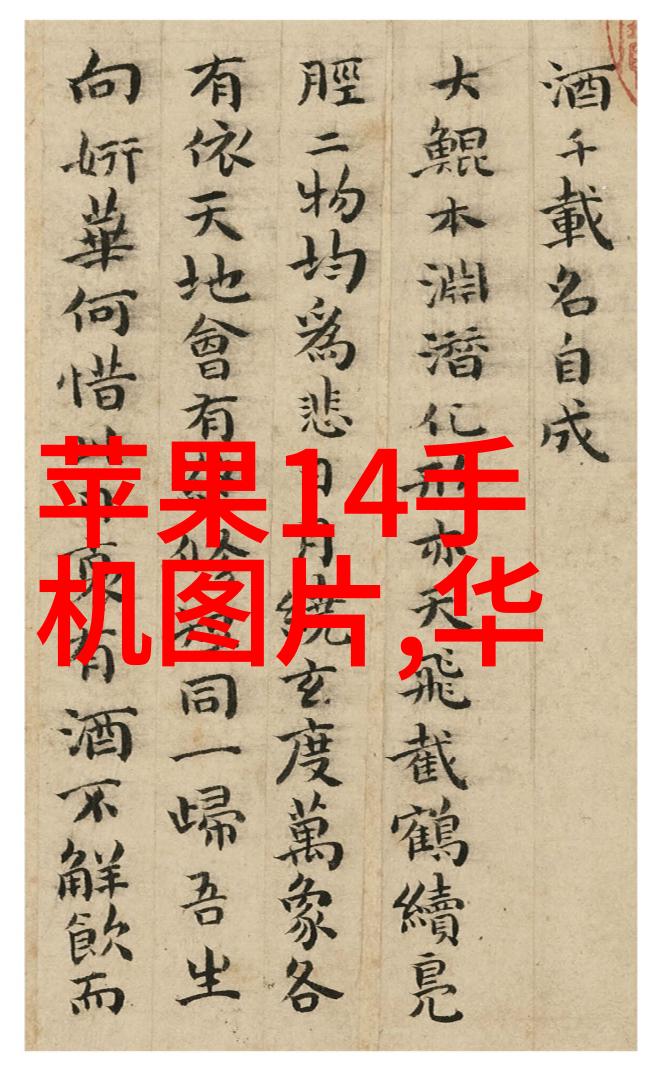 酒千載名自成
大鯤本淵潛化形亦天飛截鶴續鳧
脛二物均爲悲日月繞玄度萬象各
有依天地會有同一歸吾生
向妍華何惜有酒不解飲而
苹果14手
机图片,华